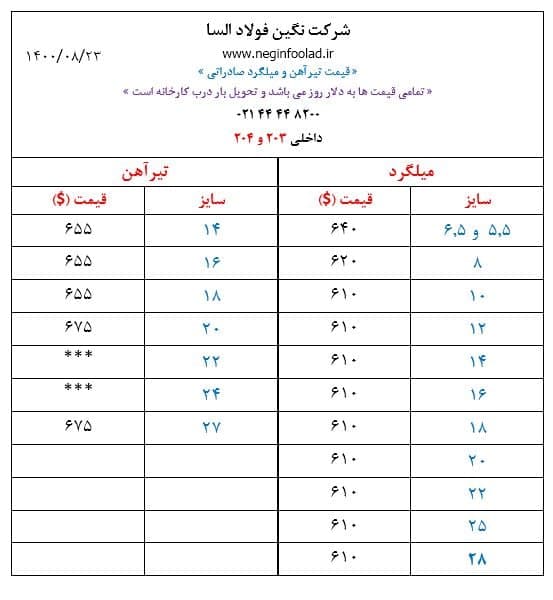 شرکت نگین فولاد السا
۱۴۰۰/۰۸/۲۳
www.neginfoolad.ir
« قیمت تیرآهن و میلگرد صادراتی »
« تمامی قیمت ها به دلار روز می باشد و تحویل بار درب کارخانه است »
۰۲۱ ۴۴ ۴۴ ۸۲۰۰
داخلی ۲۰۳ و ۲۰۴
میلگرد تیرآهن
سایز قیمت ($) سایز قیمت ($)
۵,۵ و ۶,۵ ۶۴۰ ۱۴ ۶۵۵
۸ ۶۲۰ ۱۶ ۶۵۵
۱۰ ۶۱۰ ۱۸ ۶۵۵
۱۲ ۶۱۰ ۲۰ ۶۷۵
۱۴ ۶۱۰ ۲۲ ***
۱۶ ۶۱۰ ۲۴ ***
۱۸ ۶۱۰ ۲۷ ۶۷۵
۲۰ ۶۱۰
۲۲ ۶۱۰
۲۵ ۶۱۰
۲۸ ۶۱۰